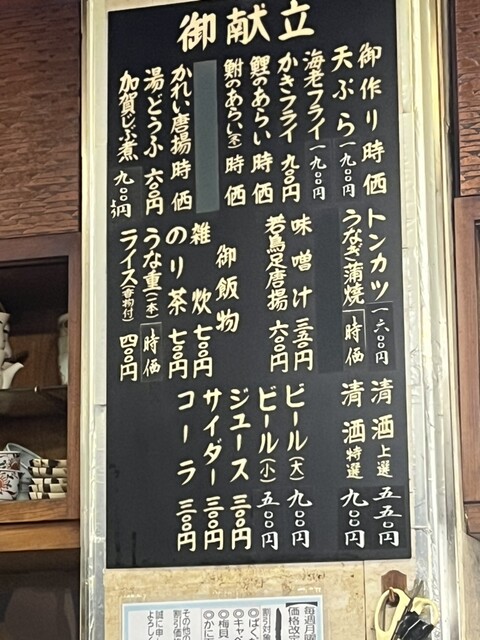 御献立
御作り 時価
天ぷら 一九〇〇円
海老フライ 一九〇〇円
かきフライ 九〇〇円
鯉のあらい 時価
鮒のあらい(冬) 時価
かれい唐揚 時価
湯どうふ 六〇〇円
加賀じぶ煮 九〇〇円より
トンカツ 一六〇〇円
うなぎ蒲焼 時価
味噌汁 三五〇円
若鳥足唐揚 六〇〇円
御飯物
雑炊 七〇〇円
のり茶 七〇〇円
うな重(一本) 時価
ライス(香物付) 四〇〇円
清酒 上選 五五〇円
清酒 特選 九〇〇円
ビール(大) 九〇〇円
ビール(小) 五〇〇円
ジュース 三〇〇円
サイダー 三〇〇円
コーラ 三〇〇円
毎週月曜
価格改定
割引対象
◎ばく
◎キャベ
◎梅貝
◎かに
その他の
割引価格
誠に申し
よろし